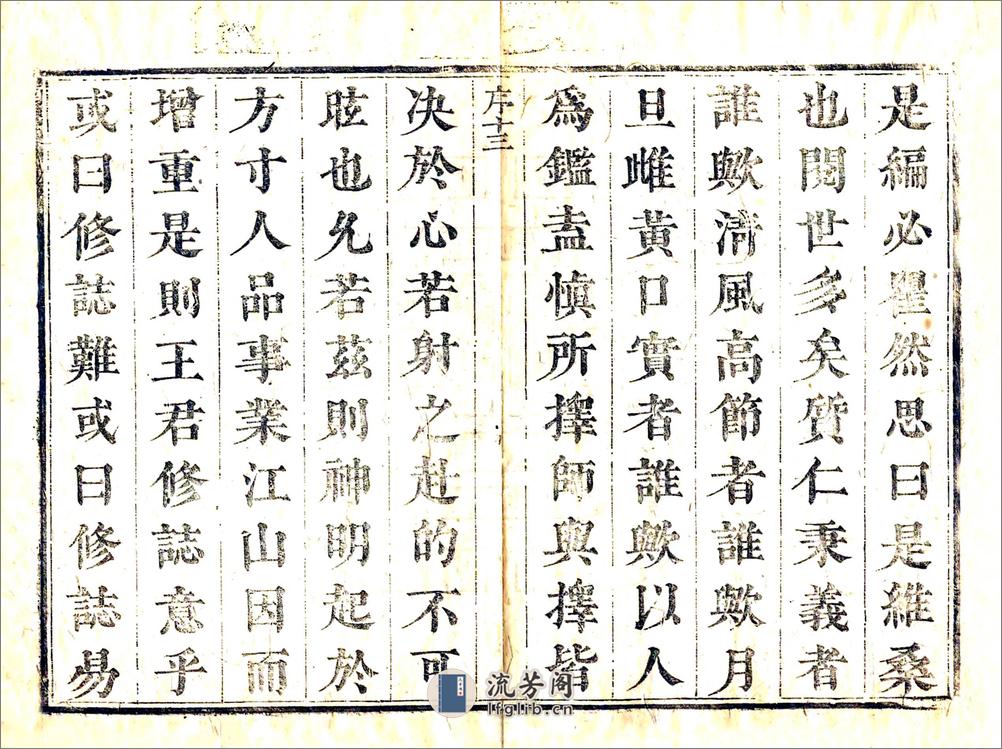 是編必瞿然思曰是維桑
也閱世多矣質仁秉義者
誰歟清風高節者誰歟月
旦雌黃口實者誰歟以人
爲鑑盍慎所擇師與擇皆
序十三
决於心若射之赴的不可
眩也允若茲則神明起於
方寸人品事業江山因而
增重是則王君修誌意乎
或曰修誌難或曰修誌易
流芳阁
lfglib.cn